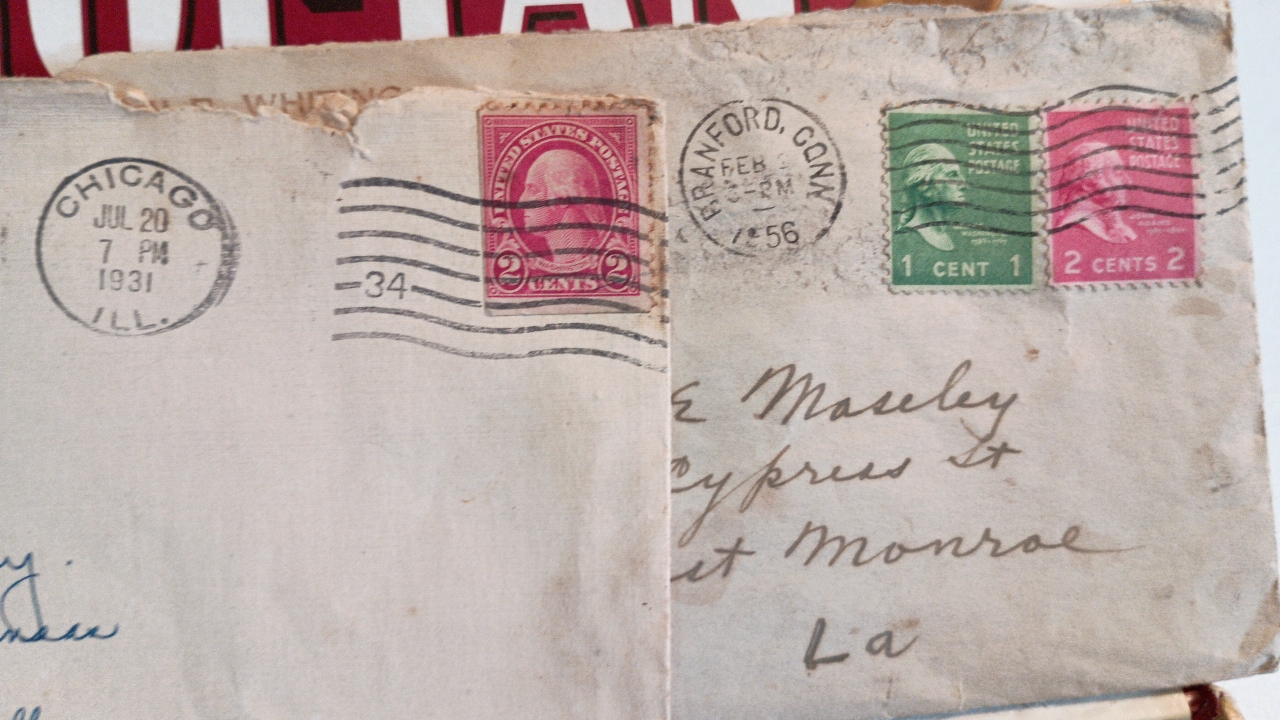 WHITING
CHICAGO
JUL 20
7 PM
1931
ILL.
34
UNITED STATES POSTAGE
2 CENTS 2
BRANFORD, CONN
FEB
PM
1956
UNITED
STATES
POSTAGE
1 CENT 1
UNITED
STATES
POSTAGE
2 CENTS 2
E Moseley
Cypress St
st Monroe
La